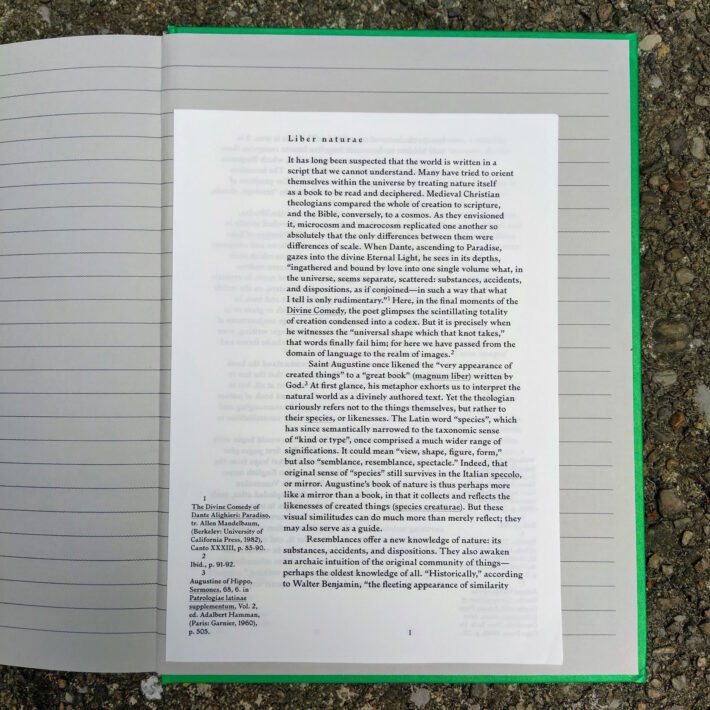 Liber naturae
It has long been suspected that the world is written in a
script that we cannot understand. Many have tried to orient
themselves within the universe by treating nature itself
as a book to be read and deciphered. Medieval Christian
theologians compared the whole of creation to scripture,
and the Bible, conversely, to a cosmos. As they envisioned
it, microcosm and macrocosm replicated one another so
absolutely that the only differences between them were
differences of scale. When Dante, ascending to Paradise,
gazes into the divine Eternal Light, he sees in its depths,
“ingathered and bound by love into one single volume what, in
the universe, seems separate, scattered: substances, accidents,
and dispositions, as if conjoined—in such a way that what
I tell is only rudimentary.”1 Here, in the final moments of the
Divine Comedy, the poet glimpses the scintillating totality
of creation condensed into a codex. But it is precisely when
he witnesses the “universal shape which that knot takes,”
that words finally fail him; for here we have passed from the
domain of language to the realm of images.2
Saint Augustine once likened the “very appearance of
created things” to a “great book” (magnum liber) written by
God.3 At first glance, his metaphor exhorts us to interpret the
natural world as a divinely authored text. Yet the theologian
curiously refers not to the things themselves, but rather to
their species, or likenesses. The Latin word “species”, which
has since semantically narrowed to the taxonomic sense
of “kind or type”, once comprised a much wider range of
significations. It could mean “view, shape, figure, form,”
but also “semblance, resemblance, spectacle.” Indeed, that
original sense of “species” still survives in the Italian specolo,
or mirror. Augustine’s book of nature is thus perhaps more
like a mirror than a book, in that it collects and reflects the
likenesses of created things (species creaturae). But these
visual similitudes can do much more than merely reflect; they
may also serve as a guide.
Resemblances offer a new knowledge of nature: its
substances, accidents, and dispositions. They also awaken
an archaic intuition of the original community of things—
perhaps the oldest knowledge of all. “Historically,” according
to Walter Benjamin, “the fleeting appearance of similarity
1
The Divine Comedy of
Dante Alighieri: Paradiso,
tr. Allen Mandelbaum,
(Berkeley: University of
California Press, 1982),
Canto XXXIII, p. 85-90.
2
Ibid., p. 91-92.
3
Augustine of Hippo,
Sermones, 68, 6. in
Patrologiae latinae
supplementum, Vol. 2,
ed. Adalbert Hamman,
(Paris: Garnier, 1960),
p. 505.
1